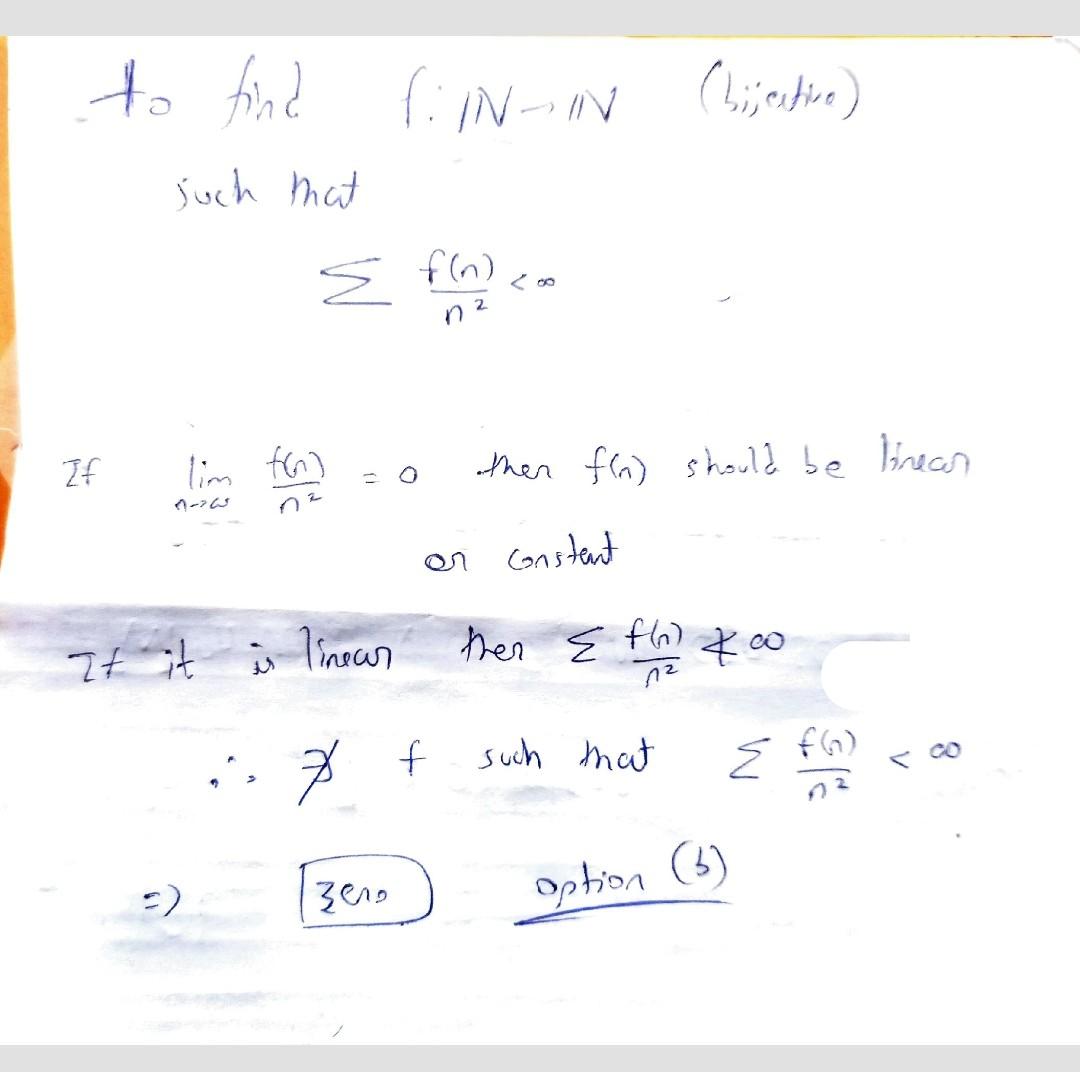 to find f: IN → IN (bijective)
such that
Σ f(n)/n² < ∞
If lim n→∞ f(n)/n² = 0 then f(n) should be linear
or constant
If it is linear then Σ f(n)/n² ≮ ∞
∴ ∄ f such that Σ f(n)/n² < ∞
=) zero option (b)